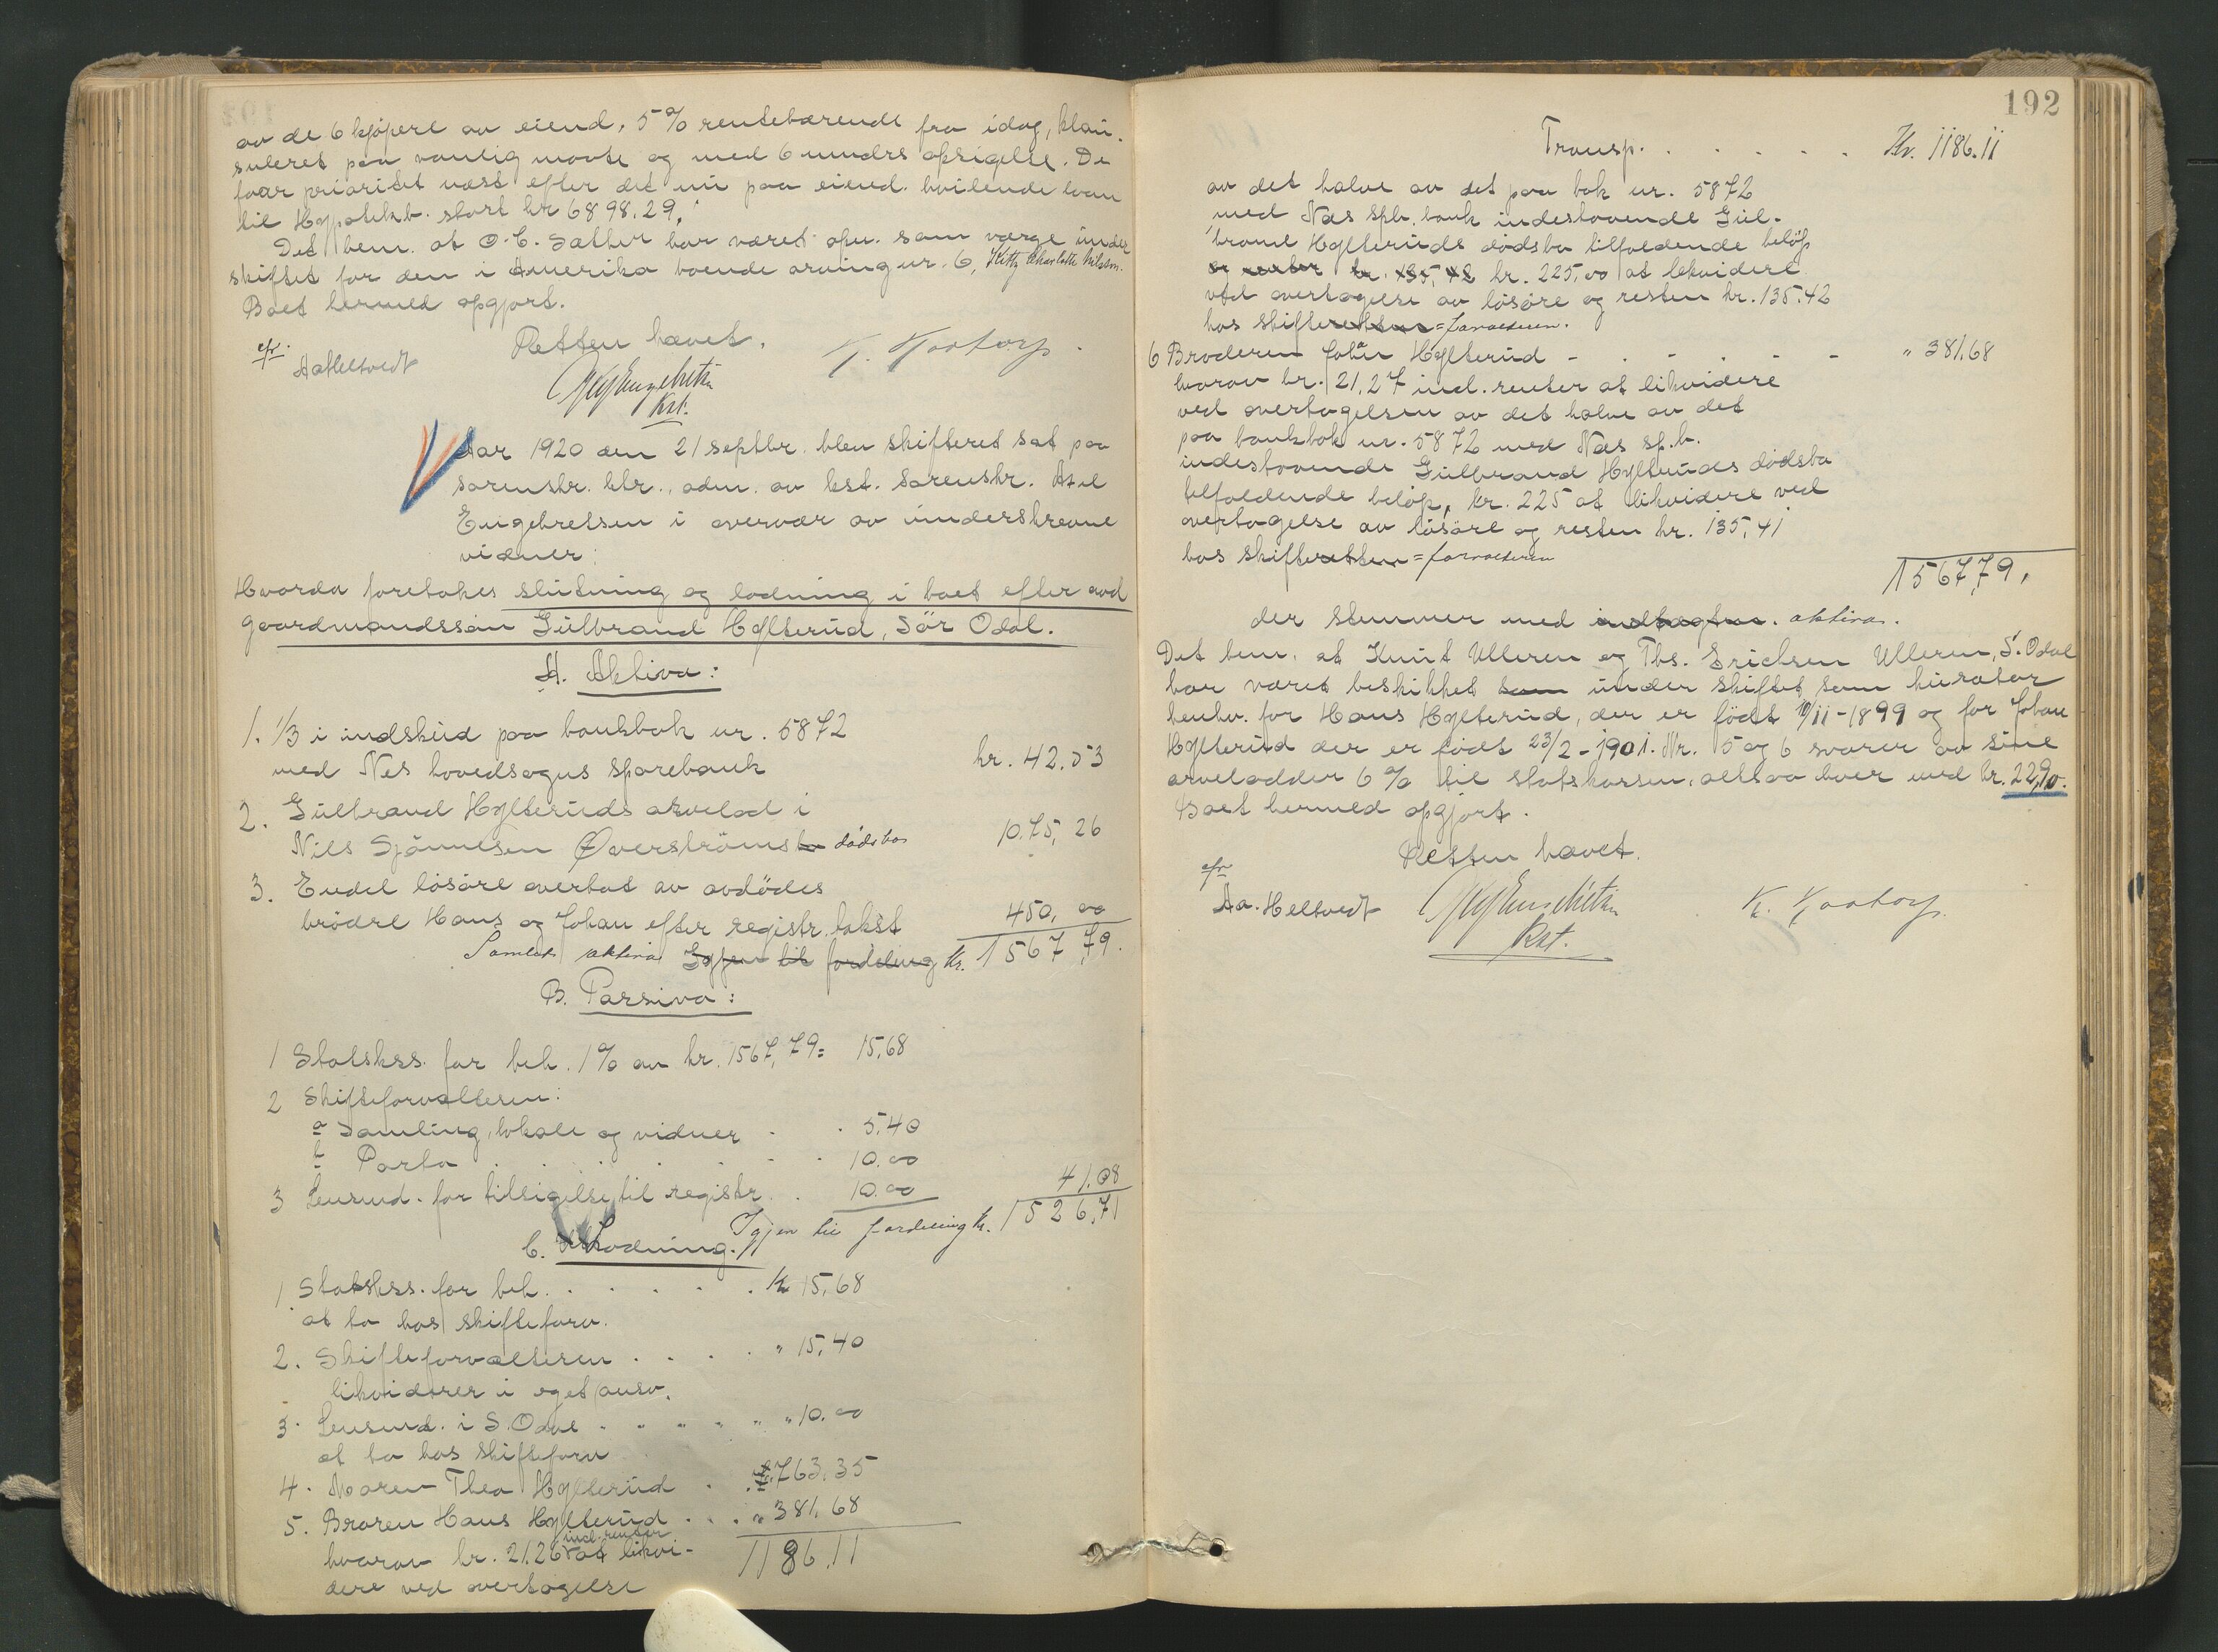 av de 6 kjøpere av eiend. 5 % rentebærende fra idag, klau-
suleret paa vanlig maate og med 6 mndrs opsigelse. De
faar prioritet næst efter det nu paa eiend. hvilende laan
til Hypotekb. stort kr 6898.29.
Det bem. at O. C. Sætter har været opn. som værge under
skiftet for den i Amerika boende arving nr. 6, Kitty Charlotte Nilsson.
Boet hermed opgjort.
Retten hævet.
efr.
Aa Heltvedt
K. Kaatorp.
Kst.
Aar 1920 den 21 septbr. blev skifteret sat paa
sorenskr. ktr., adm. av kst. sorenskr. Axel
Engebretsen i overvær av underskrevne
vidner:
Hvorda foretokes slutning og lodning i boet efter avd
gaardmandssøn Gulbrand Hylterud, Sør Odal.
A. Aktiva:
1. 1/3 i indskud paa bankbok nr. 5872
med Nes hovedsogns sparebank kr. 42.53
2. Gulbrand Hylteruds arvelod i
Nils Sjønnesen Øverstrøms dødsbo 1075,26
3. Endel løsøre overtat av avdødes
brødre Hans og Johan efter registr. takst 450,00
Samlet aktiva Igjen til fordeling Kr. 1567,79.
B. Passiva:
1 Statskss. for beh. 1 % av kr. 1567,79 = 15,68
2 Skifteforvalteren:
a Samling, lokale og vidner . . 5.40
b Porto . . . . . . 10.00
3 Lensmd. for tilsigelse til registr. . 10.00 41.08
Igjen til fordeling kr. 1526,71
C. Utlodning.
1 Statskss. for beh. . . . . . . Kr 15,68
at ta hos skifteforv.
2. Skifteforvalteren . . . . . " 15,40
likviderer i eget ansv.
3. Lensmd. i S. Odal . . . . . " 10.00
at ta hos skifteforv
4. Moren Thea Hylterud . . 763,35
5. Broren Hans Hylterud . . . " 381,68
hvorav kr. 21.26 incl. renter at likvi- 1186.11
dere ved overtagelse
192
Transp. . . . . . Kr. 1186.11
av det halve av det paa bok nr. 5872
med Næs spb. bank indestaaende Gul-
brand Hylteruds dødsbo tilfaldende beløp
kr. 135,42 kr. 225,00 at lekvidere
ved overtagelse av løsøre og resten kr. 135.42
hos skifteretten = forvalteren.
6 Broderen Johan Hylterud - . - . - . - " 381.68
hvorav kr. 21,27 incl. renter at likvidere
ved overtagelsen av det halve av det
paa bankbok nr. 5872 med Næs sp.b.
indestaaende Gulbrand Hylteruds dødsbo
tilfaldende beløp, kr. 225 at likvidere ved
overtagelse av løsøre og resten kr. 135,41
hos skifteretten = forvalteren
1567,79.
der stemmer med indtægten. aktiva.
Det bem. at Knut Ulleren og Ths. Erichsen Ulleren, S. Odal
har været beskikket som under skiftet som kurator
henhv. for Hans Hylterud, der er født 10/11-1899 og for Johan
Hylterud der er født 23/2-1901. Nr. 5 og 6 svarer av sine
arvelodder 6 % til statskassen, altsaa hver med kr. 22,90.
Boet hermed opgjort.
Retten hævet.
efr
Aa. Heltvedt
K. Kaatorp.
Kst.